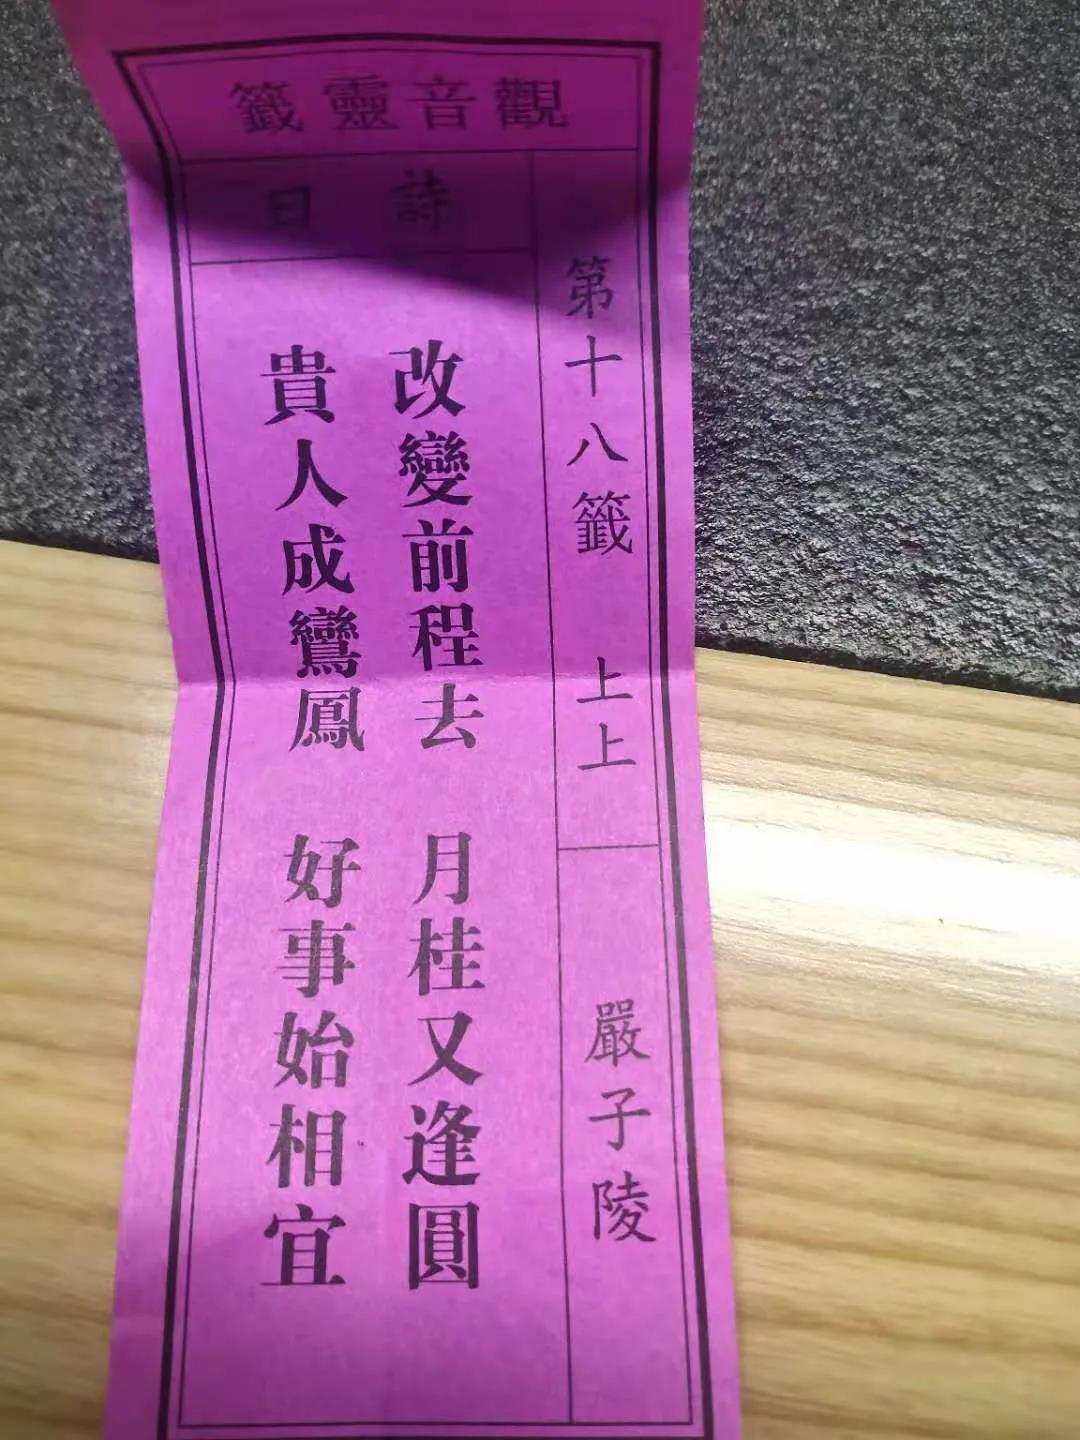 觀音靈籤
第十八籤 上上 嚴子陵
詩曰
改變前程去 月桂又逢圓
貴人成鸞鳳 好事始相宜